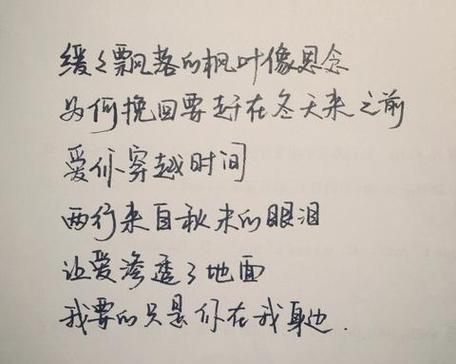 缓々飘落的枫叶像思念
为何挽回要赶在冬天来之前
爱你穿越时间
两行来自秋末的眼泪
让爱渗透了地面
我要的只是你在我身边.